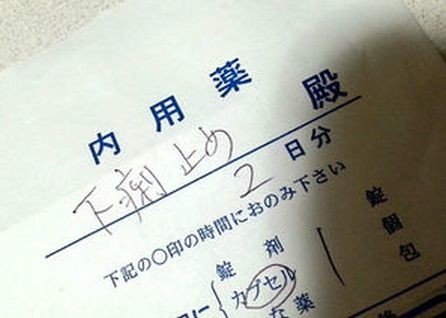 内用薬 殿
下痢止め
2日分
下記の〇印の時間におのみ下さい
錠剤 錠
カプセル 個
包
な薬